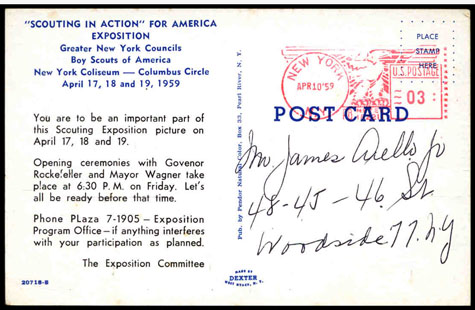 "SCOUTING IN ACTION" FOR AMERICA
EXPOSITION
Greater New York Councils
Boy Scouts of America
New York Coliseum — Columbus Circle
April 17, 18 and 19, 1959
You are to be an important part of
this Scouting Exposition picture on
April 17, 18 and 19.
Opening ceremonies with Govenor
Rockefeller and Mayor Wagner take
place at 6:30 P. M. on Friday. Let's
all be ready before that time.
Phone PLaza 7-1905 — Exposition
Program Office — if anything interferes
with your participation as planned.
The Exposition Committee
20718-B
Pub. by Pendor Natural Color, Box 33, Pearl River, N. Y.
MADE BY
DEXTER
WEST NYACK, N. Y.
PLACE
STAMP
HERE
NEW YORK
APR10'59
U.S. POSTAGE
03
POST CARD
James Aiello Jr
48-45-46 St
Woodside 77. NY